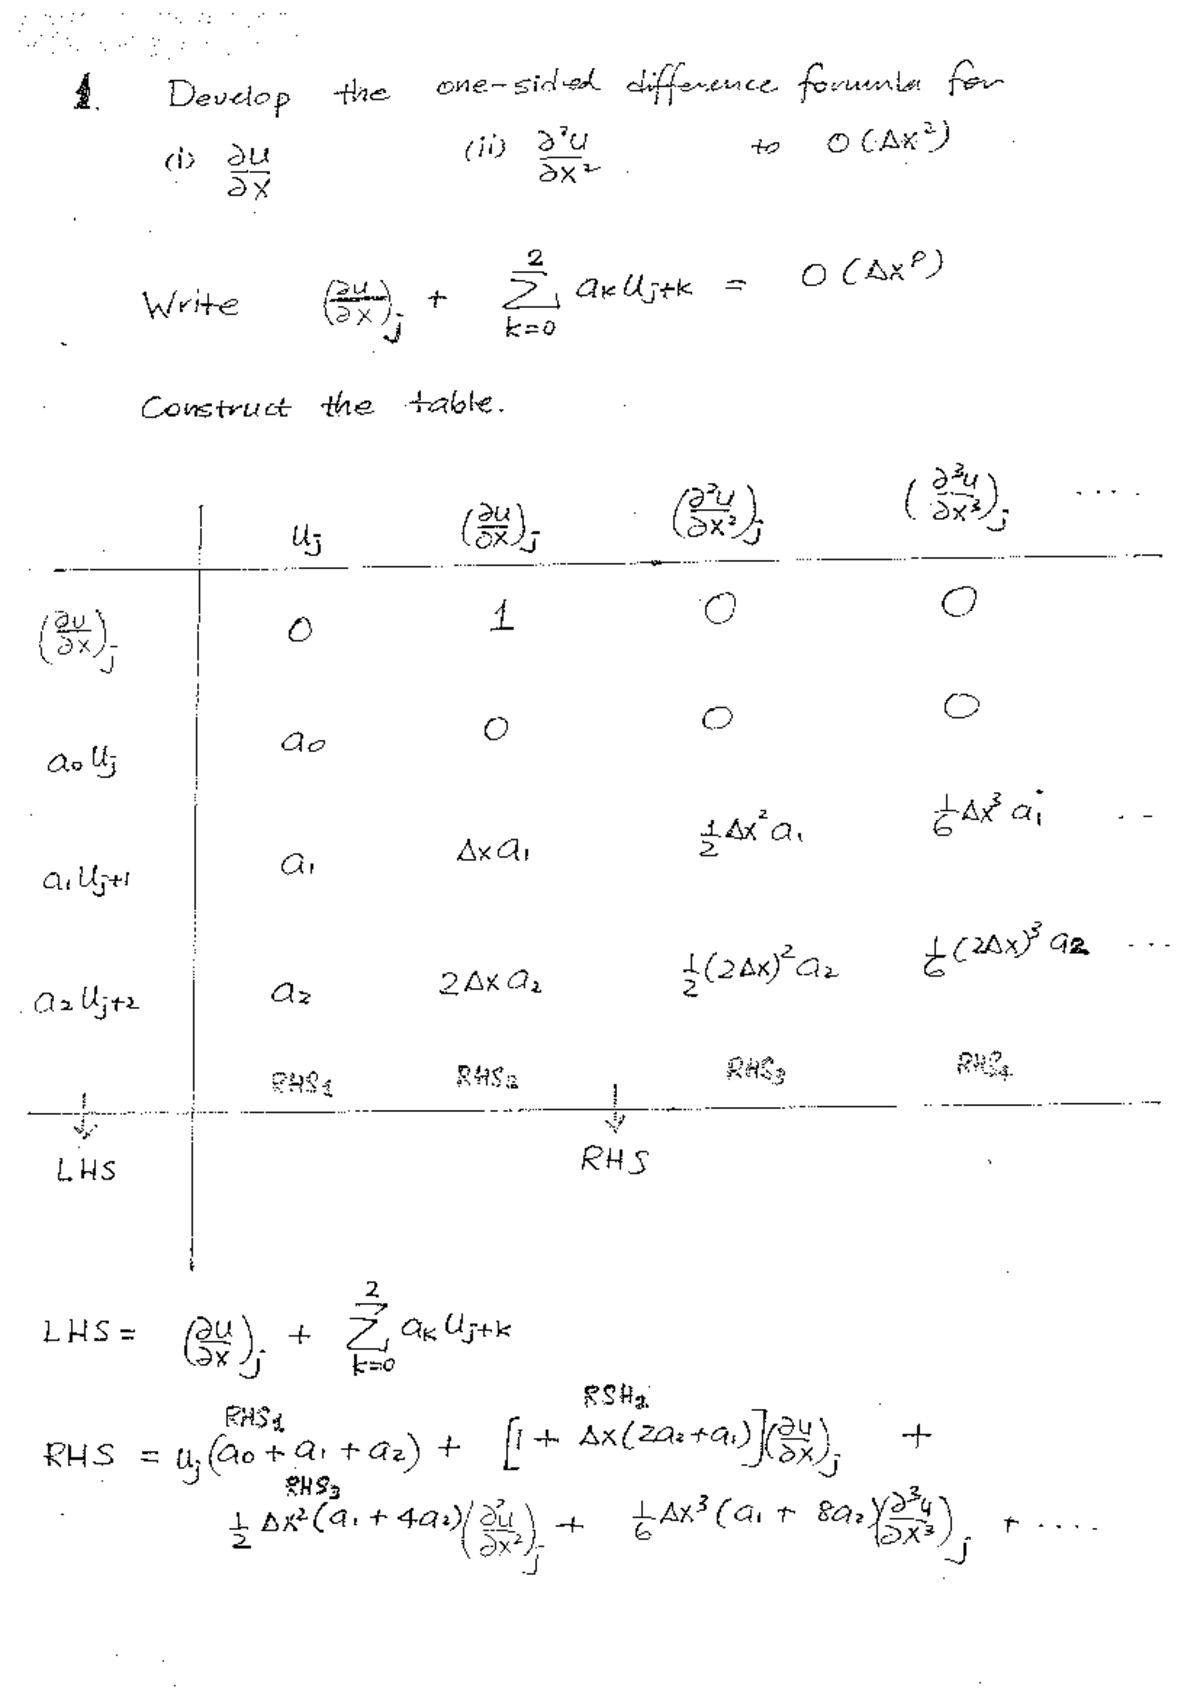 1. Develop the one-sided difference formula for
(i) ∂u/∂x (ii) ∂²u/∂x² to O(Δx²)
Write (∂u/∂x)_j + Σ_{k=0}^{2} a_k u_{j+k} = O(Δx^p)
Construct the table.
u_j (∂u/∂x)_j (∂²u/∂x²)_j (∂³u/∂x³)_j ....
(∂u/∂x)_j 0 1 0 0
a₀u_j a₀ 0 0 0
a₁u_{j+1} a₁ Δx a₁ ½Δx² a₁ 1/6 Δx³ a₁ --
a₂u_{j+2} a₂ 2Δx a₂ ½(2Δx)² a₂ 1/6 (2Δx)³ a₂ ---
RHS₁ RHS₂ RHS₃ RHS₄
↓ ↓
LHS RHS
LHS = (∂u/∂x)_j + Σ_{k=0}^{2} a_k u_{j+k}
RHS₁ RSH₂
RHS = u_j(a₀ + a₁ + a₂) + [1 + Δx(2a₂+a₁)](∂u/∂x)_j +
RHS₃
½ Δx²(a₁ + 4a₂)(∂²u/∂x²)_j + 1/6 Δx³(a₁ + 8a₂)(∂³u/∂x³)_j + ....